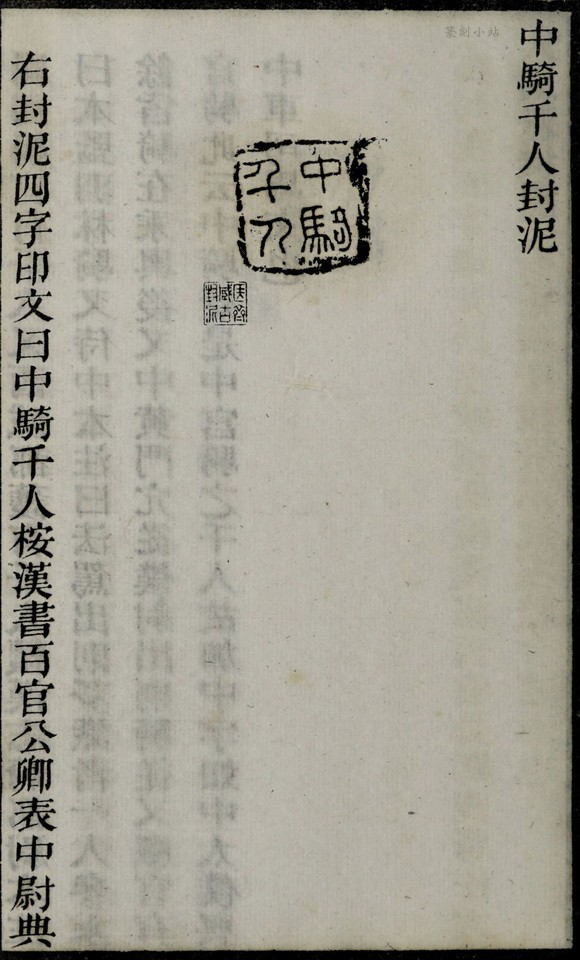 中騎千人封泥
篆刻小站
中騎
千人
右封泥四字印文曰中騎千人桉漢書百官公卿表中尉典